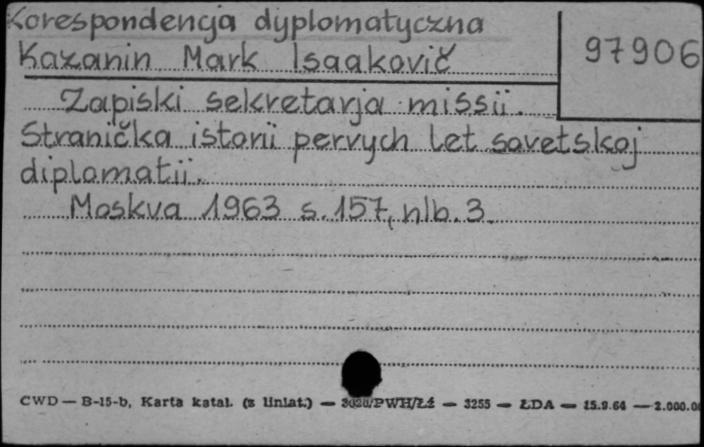 Korespondencja dyplomatyczna
97906
Kazanin Mark Isaakovič
Zapiski sekretarja missii.
Stranička istorii pervych let sovetskoj
diplomatii.
Moskva 1963 s. 157, nlb. 3.
CWD — B-15-b, Karta katal. (z liniat.) — /PWH/Łź — 3255 — ŁDA — 15.9.64 — 2.000.00